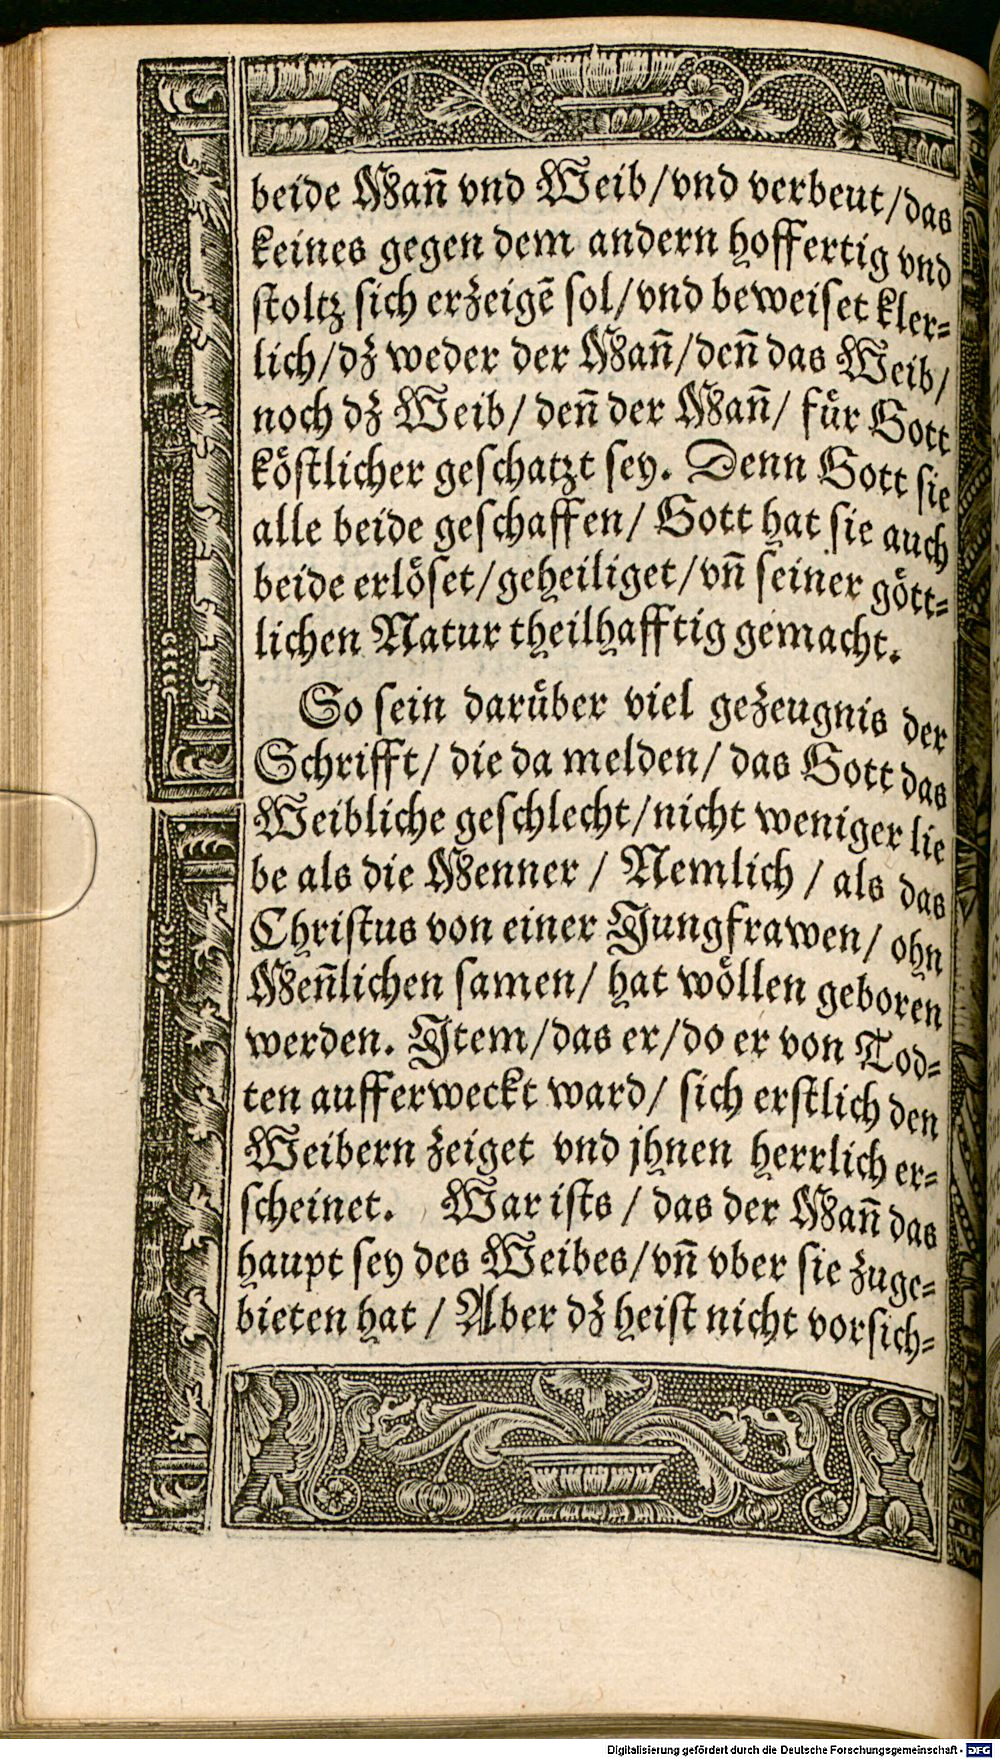 beide Mañ vnd Weib/vnd verbeut/das
keines gegen dem andern hoffertig vnd
stoltz sich erzeigẽ sol/vnd beweiset kler=
lich/dz weder der Mañ/deñ das Weib/
noch dz Weib/ deñ der Mañ/ für Gott
köstlicher geschatzt sey. Denn Gott sie
alle beide geschaffen/ Gott hat sie auch
beide erlöset/geheiliget/vñ seiner gött=
lichen Natur theilhafftig gemacht.
So sein darüber viel gezeugnis der
Schrifft/ die da melden/ das Gott das
Weibliche geschlecht/nicht weniger lie
be als die Menner / Nemlich / als das
Christus von einer Jungfrawen/ ohn
Meñlichen samen/ hat wöllen geboren
werden. Jtem/das er/do er von Tod=
ten aufferweckt ward/ sich erstlich den
Weibern zeiget vnd jhnen herrlich er=
scheinet. War ists / das der Mañ das
haupt sey des Weibes/vñ vber sie zuge=
bieten hat / Aber dz heist nicht vorsich=
Digitalisierung gefördert durch die Deutsche Forschungsgemeinschaft - DFG